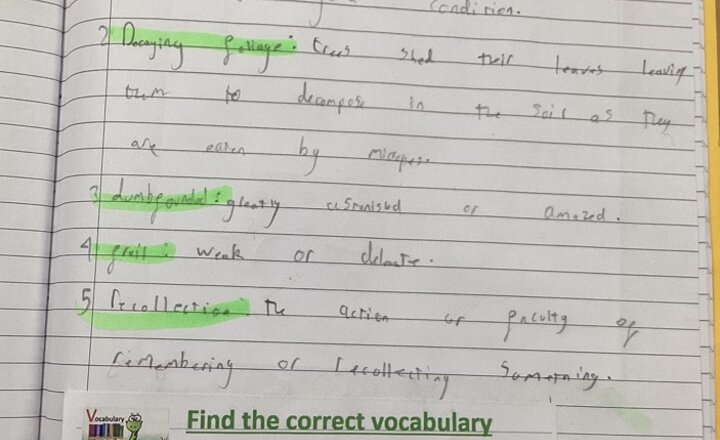 condition.
2 Decaying foliage: trees shed their leaves leaving
them to decompose in the soil as they
are eaten by
3 dumbfounded: greatly astonished or amazed.
4 frail: weak or delicate.
5 recollection: the action or faculty of
remembering or recollecting something.
Vocabulary
Find the correct vocabulary